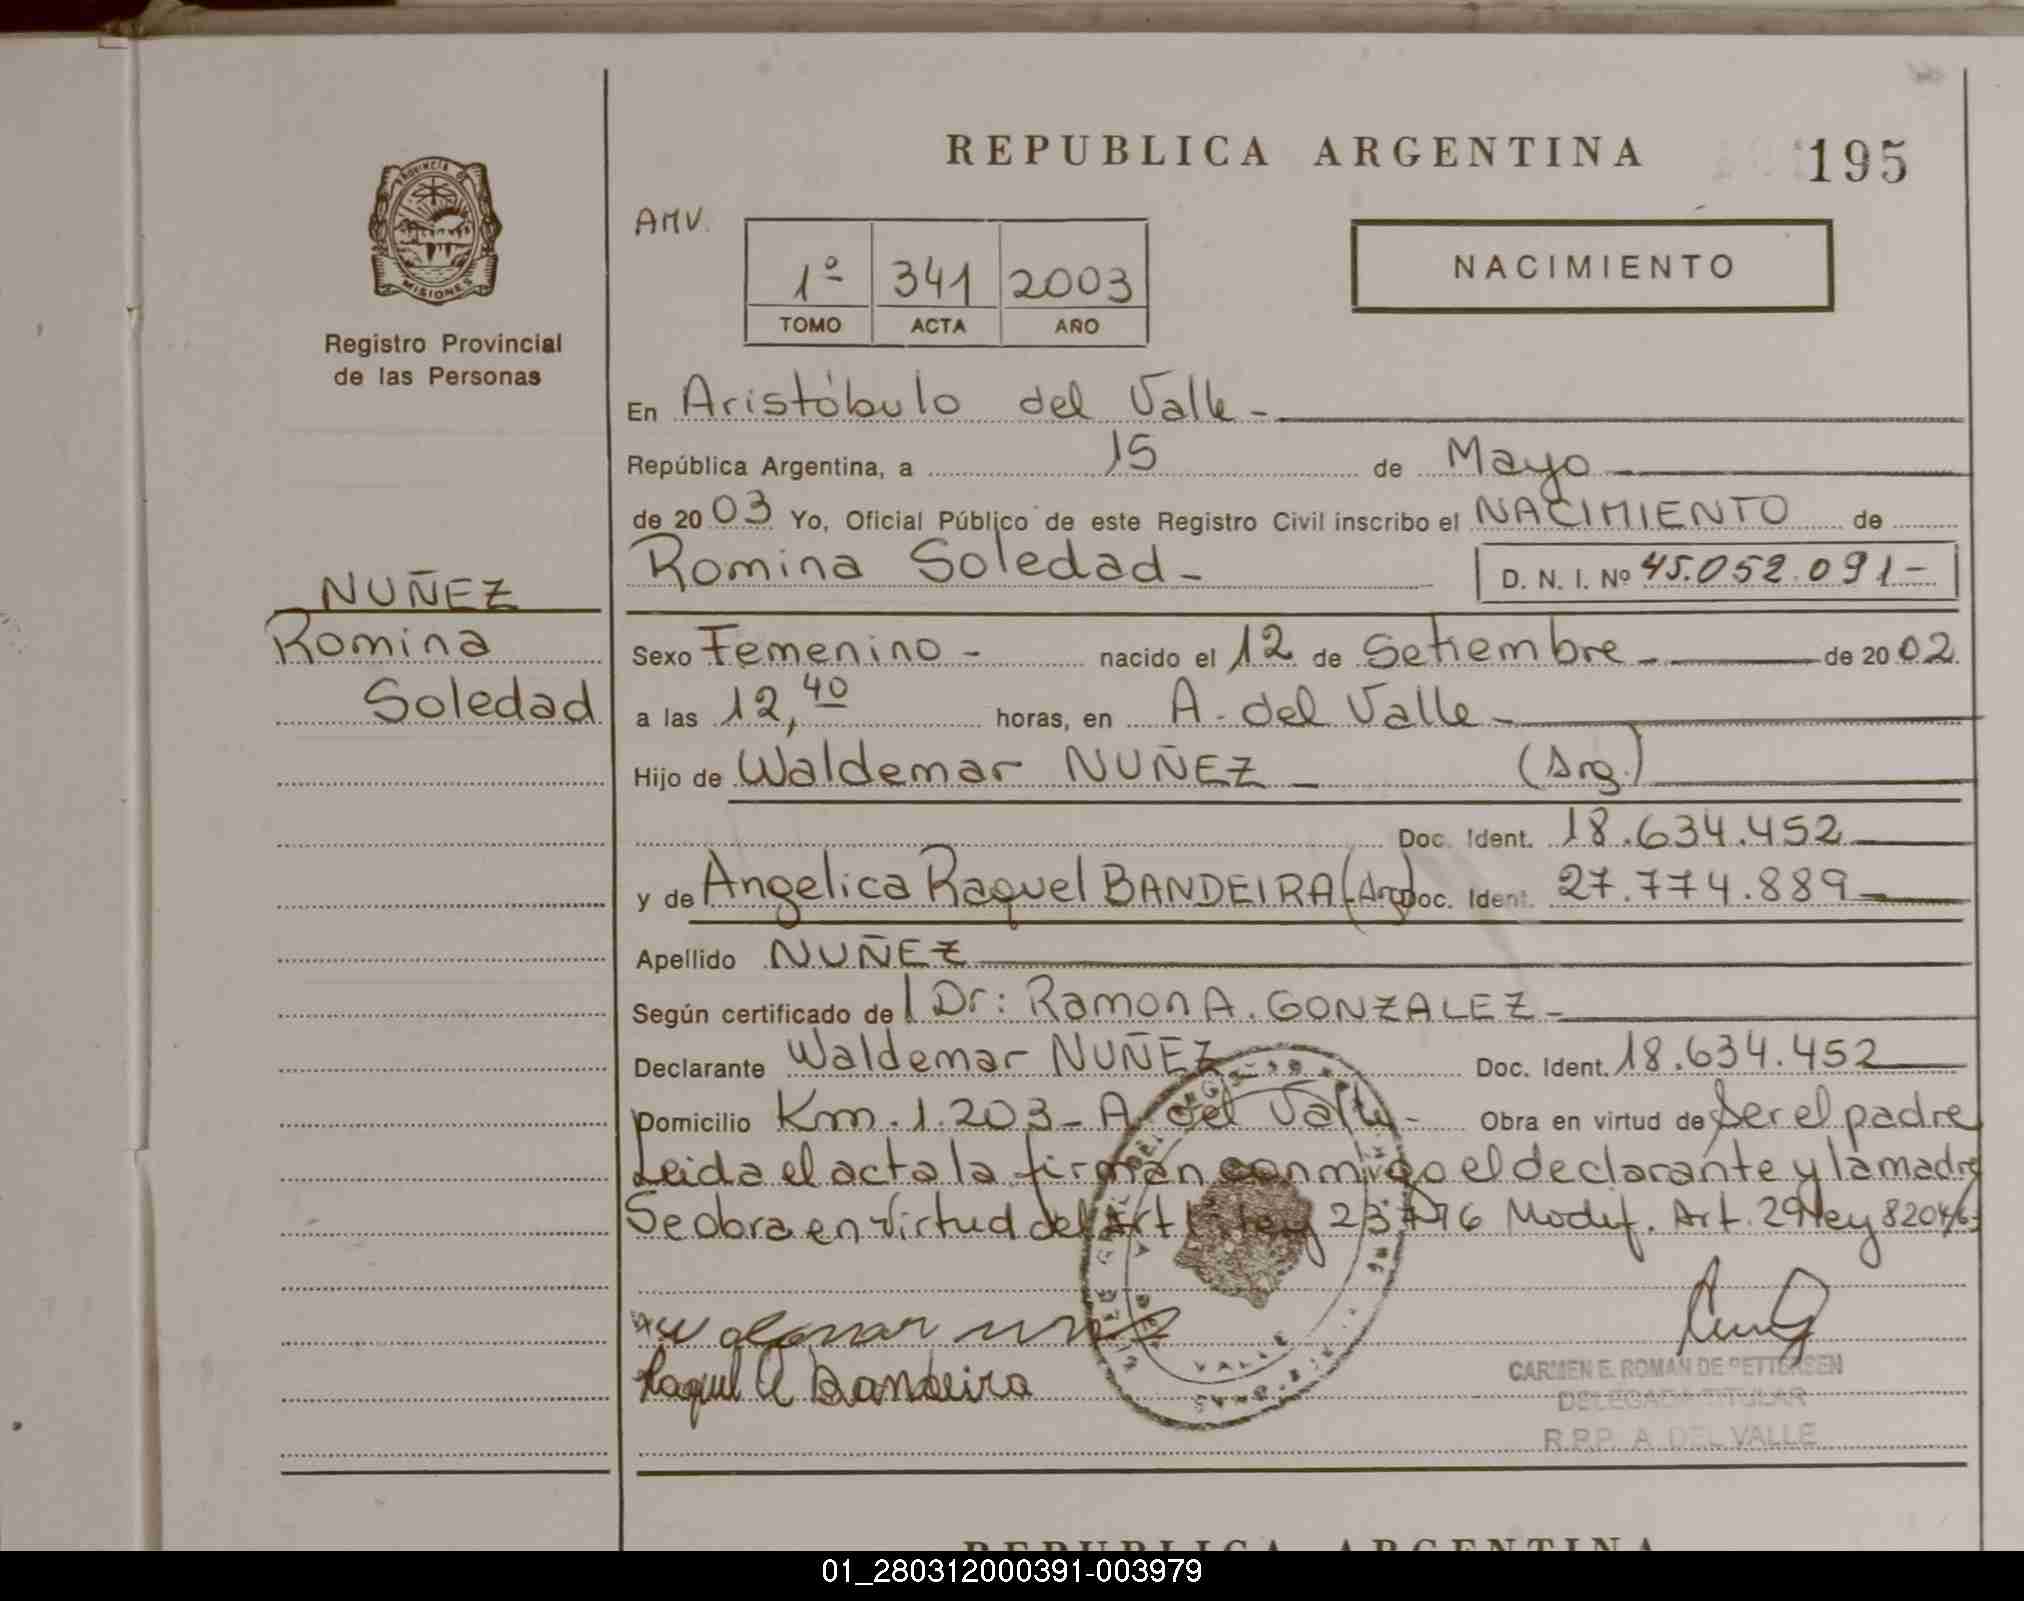 REPUBLICA ARGENTINA
195
PROVINCIA DE
MISIONES
Registro Provincial
de las Personas
AMV.
1º 341 2003
TOMO ACTA AÑO
NACIMIENTO
En Aristóbulo del Valle -
República Argentina, a 15 de Mayo
de 2003 Yo, Oficial Público de este Registro Civil inscribo el NACIMIENTO de
Romina Soledad - D. N. I. Nº 45.052.091-
NUÑEZ
Romina
Soledad
Sexo Femenino - nacido el 12 de Setiembre - de 2002.
a las 12,40 horas, en A. del Valle -
Hijo de Waldemar NUÑEZ - (Arg.)
Doc. Ident. 18.634.452
y de Angelica Raquel BANDEIRA (Arg) Doc. Ident. 27.774.889
Apellido NUÑEZ
Según certificado del Dr: Ramon A. GONZALEZ -
Declarante Waldemar NUÑEZ Doc. Ident. 18.634.452
Domicilio Km. 1.203 - A. del Valle - Obra en virtud de Ser el padre
Leida el acta la firman conmigo el declarante y la madre
Se obra en virtud del Art Ley 23776 Modif. Art. 29 Ley 8204/63
Raquel A Bandeira
VALLE
CARMEN E. ROMAN DE PETTERSEN
DELEGADA TITULAR
R.P.P. A. DEL VALLE
REPUBLICA ARGENTINA
01_280312000391-003979